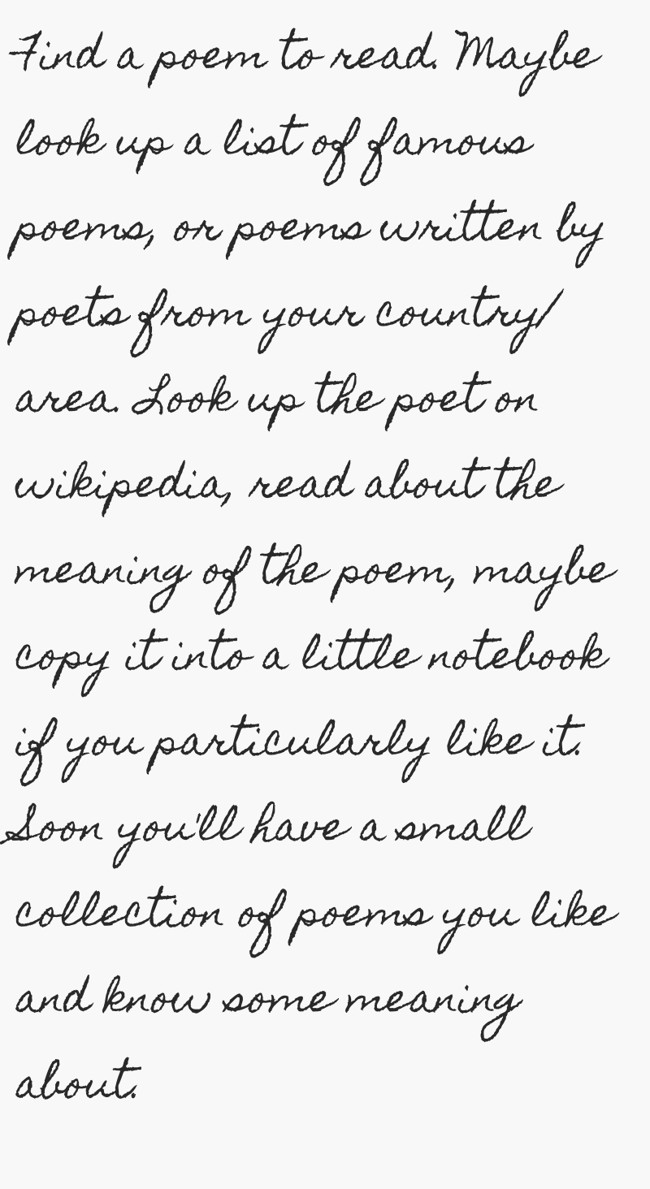 Find a poem to read. Maybe
look up a list of famous
poems, or poems written by
poets from your country/
area. Look up the poet on
wikipedia, read about the
meaning of the poem, maybe
copy it into a little notebook
if you particularly like it.
Soon you'll have a small
collection of poems you like
and know some meaning
about.